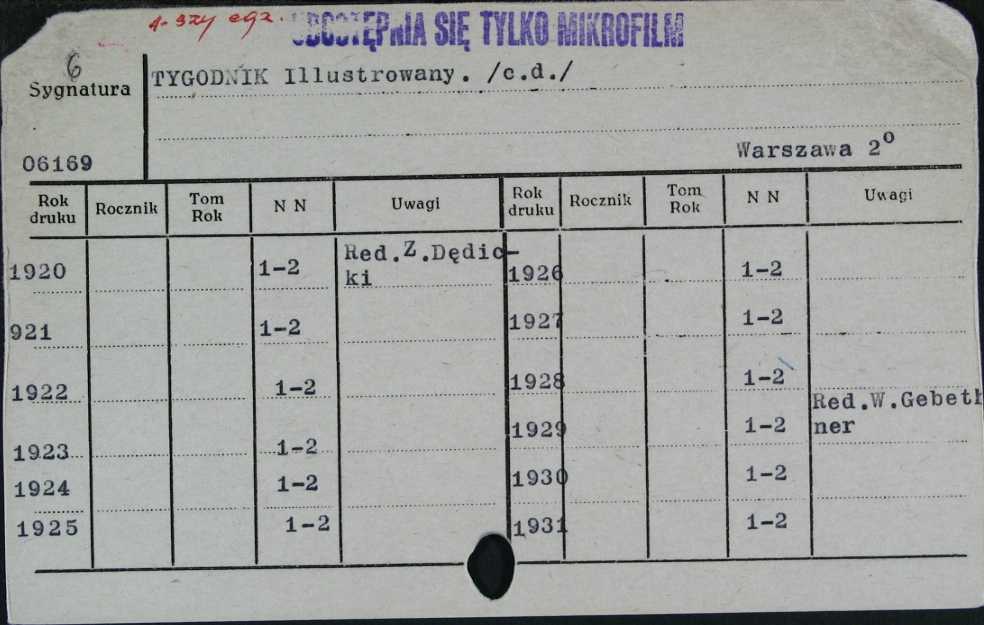 1-szy egz.
UDOSTĘPNIA SIĘ TYLKO MIKROFILM
6
Sygnatura
TYGODNIK Illustrowany. /c.d./
06169
Warszawa 2º
Rok druku Rocznik Tom Rok N N Uwagi Rok druku Rocznik Tom Rok N N Uwagi
1920 1-2 Red.Z.Dędic-
ki
1926 1-2
921 1-2 1927 1-2
1922 1-2 1928 1-2
Red.W.Gebeth
1929 1-2 ner
1923 1-2
1924 1-2 1930 1-2
1925 1-2 1931 1-2